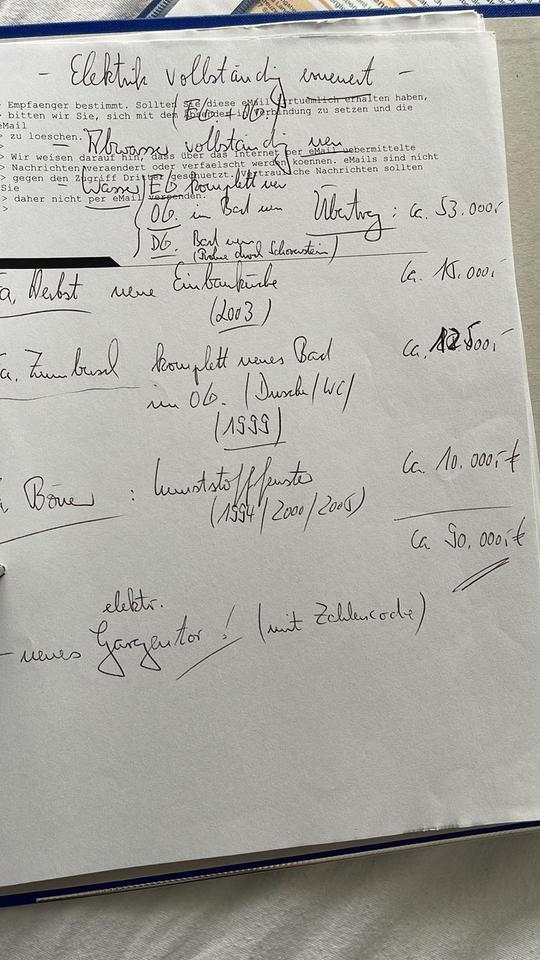 - Elektrik vollständig erneuert -
> Empfaenger bestimmt. Sollten Sie diese eMail irrtuemlich erhalten haben,
> bitten wir Sie, sich mit dem Absender in Verbindung zu setzen und die
eMail
(EG. + OG.)
> zu loeschen.
- Abwasser vollständig neu
>
> Wir weisen darauf hin, dass über das Internet per eMail uebermittelte
> Nachrichten veraendert oder verfaelscht werden koennen. eMails sind nicht
> gegen den Zugriff Dritter geschuetzt. Vertrauliche Nachrichten sollten
Sie
- Wasser EG komplett neu
> daher nicht per eMail versenden.
>
OG. im Bad neu Übertrag: ca. 53.000,-
DG. Bad neu
(Rohre durch Schornstein)
Fa. Herbst neue Einbauküche ca. 15.000,-
(2003)
Fa. Zumbusch komplett neues Bad ca. 12.500,-
im OG. (Dusche/WC)
(1999)
Böner : Kunststofffenster ca. 10.000,-€
(1994/2000/2005)
ca 90.000,-€
elektr.
- neues Garagentor! (mit Zahlencode)